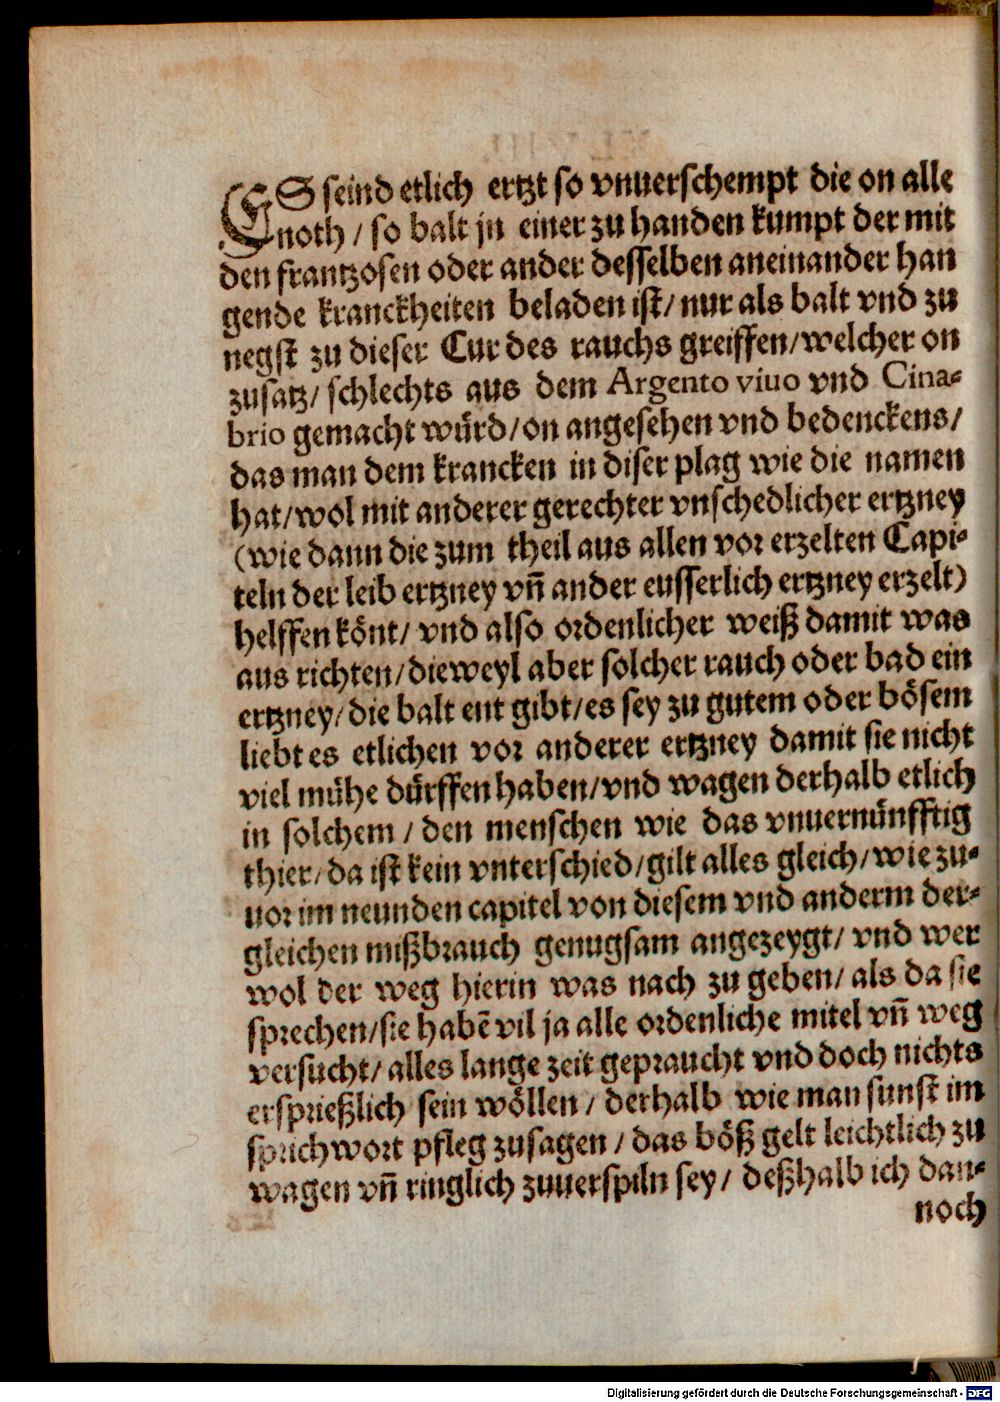 ES seind etlich ertzt so vnuerschempt die on alle
noth / so balt jn einer zu handen kumpt der mit
den frantzosen oder ander desselben aneinander han
gende kranckheiten beladen ist/ nur als balt vnd zu
negst zu dieser Cur des rauchs greiffen/welcher on
zusatz/ schlechts aus dem Argento viuo vnd Cina-
brio gemacht würd/on angesehen vnd bedenckens/
das man dem krancken in diser plag wie die namen
hat/wol mit anderer gerechter vnschedlicher ertzney
(wie dann die zum theil aus allen vor erzelten Capi-
teln der leib ertzney vñ ander eusserlich ertzney erzelt)
helffen könt/ vnd also ordenlicher weiß damit was
aus richten/dieweyl aber solcher rauch oder bad ein
ertzney/die balt ent gibt/es sey zu gutem oder bösem
liebt es etlichen vor anderer ertzney damit sie nicht
viel mühe dürffen haben/vnd wagen derhalb etlich
in solchem / den menschen wie das vnuernünfftig
thier/da ist kein vnterschied/gilt alles gleich/wie zu-
uor im neunden capitel von diesem vnd anderm der-
gleichen mißbrauch genugsam angezeygt/ vnd wer
wol der weg hierin was nach zu geben/ als da sie
sprechen/sie habē vil ja alle ordenliche mitel vñ weg
versucht/ alles lange zeit gepraucht vnd doch nichts
ersprießlich sein wöllen / derhalb wie man sunst im
sprichwort pfleg zusagen / das böß gelt leichtlich zu
wagen vñ ringlich zuuerspiln sey/ deßhalb ich dan-
noch
Digitalisierung gefördert durch die Deutsche Forschungsgemeinschaft - DFG